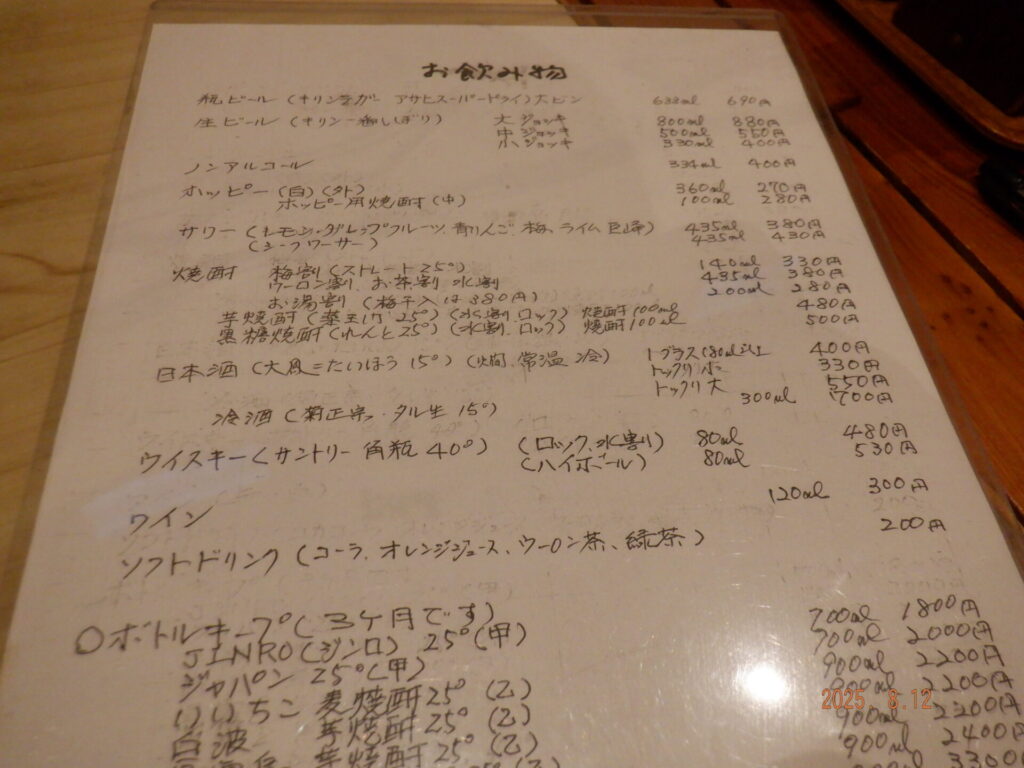 お飲み物
瓶ビール (キリンラガー アサヒスーパードライ) 大ビン 633ml 690円
生ビール (キリン一番しぼり) 大ジョッキ 800ml 880円
中ジョッキ 500ml 550円
小ジョッキ 330ml 400円
ノンアルコール 334ml 400円
ホッピー (白) (外) 360ml 270円
ホッピー用焼酎 (中) 100ml 280円
サワー (レモン・グレープフルーツ、青りんご、梅、ライム 巨峰) 435ml 380円
(シークワーサー) 435ml 430円
焼酎 梅割 (ストレート25°) 140ml 330円
ウーロン割、お茶割 水割 435ml 380円
お湯割 (梅干入は380円) 200ml 280円
芋焼酎 ( 25°) (水割 ロック) 焼酎100ml 480円
黒糖焼酎 (れんと25°) (水割、ロック) 焼酎100ml 500円
日本酒 (大鳳=たいほう 15°) (燗、常温 冷) 1グラス180ml以上 400円
トックリ 小 330円
トックリ 大 550円
冷酒 (菊正宗・タル生 15°) 300ml 700円
ウイスキー (サントリー 角瓶 40°) (ロック、水割) 80ml 480円
(ハイボール) 80ml 530円
ワイン 120ml 300円
ソフトドリンク (コーラ、オレンジジュース、ウーロン茶、緑茶) 200円
○ボトルキープ (3ケ月です)
JINRO (ジンロ) 25° (甲) 700ml 1800円
ジャパン 25° (甲) 700ml 2000円
いいちこ 麦焼酎 25° (乙) 900ml 2200円
白波 芋焼酎 25° (乙) 900ml 2200円
芋焼酎 25° (乙) 900ml 2200円
900ml 2400円
3300
2025 8.12